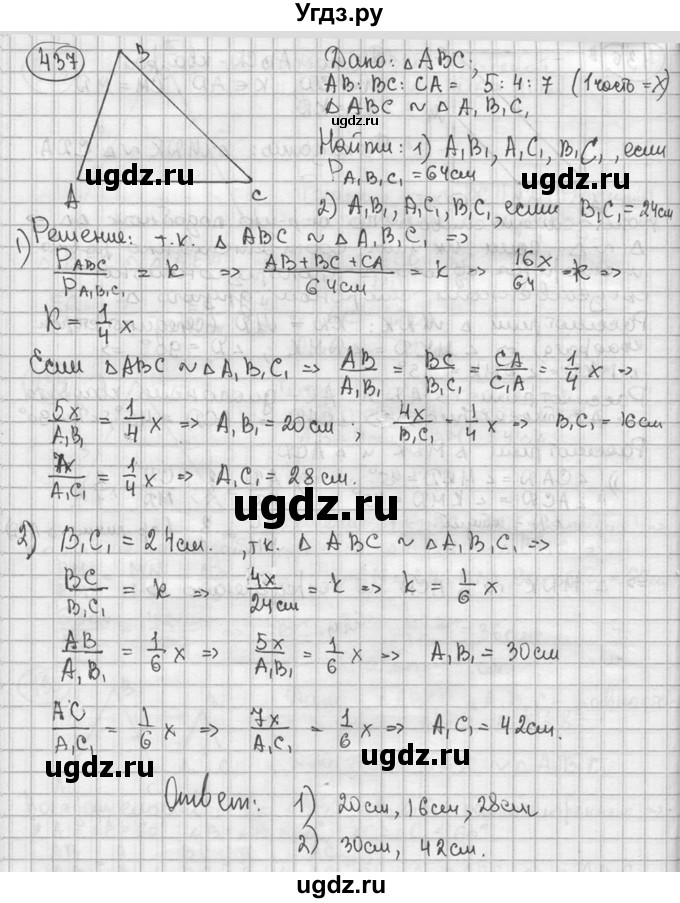 Угдз.ру
437
B
A
C
Дано: △ABC;
AB : BC : CA = 5 : 4 : 7 (1 часть = x)
△ABC ~ △A₁B₁C₁
Найти: 1) A₁B₁, A₁C₁, B₁C₁, если
P_A₁B₁C₁ = 64 см
2) A₁B₁, A₁C₁, B₁C₁, если B₁C₁ = 24 см
ugdz.ru ugdz.ru
1) Решение: т.к. △ABC ~ △A₁B₁C₁ =>
P_ABC / P_A₁B₁C₁ = k => (AB + BC + CA) / 64 см = k => 16x / 64 = k =>
ugdz.ru
K = 1/4 x
Если △ABC ~ △A₁B₁C₁ => AB / A₁B₁ = BC / B₁C₁ = CA / C₁A = 1/4 x =>
5x / A₁B₁ = 1/4 x => A₁B₁ = 20 см ; 4x / B₁C₁ = 1/4 x => B₁C₁ = 16 см
ugdz.ru
7x / A₁C₁ = 1/4 x => A₁C₁ = 28 см.
ugdz.ru
2) B₁C₁ = 24 см. , т.к. △ABC ~ △A₁B₁C₁ =>
BC / B₁C₁ = k => 4x / 24 см = k => k = 1/6 x
ugdz.ru
AB / A₁B₁ = 1/6 x => 5x / A₁B₁ = 1/6 x => A₁B₁ = 30 см
AC / A₁C₁ = 1/6 x => 7x / A₁C₁ = 1/6 x => A₁C₁ = 42 см.
ugdz.ru ugdz.ru
Ответ: 1) 20 см, 16 см, 28 см
2) 30 см, 42 см.
ugdz.ru
ugdz.ru